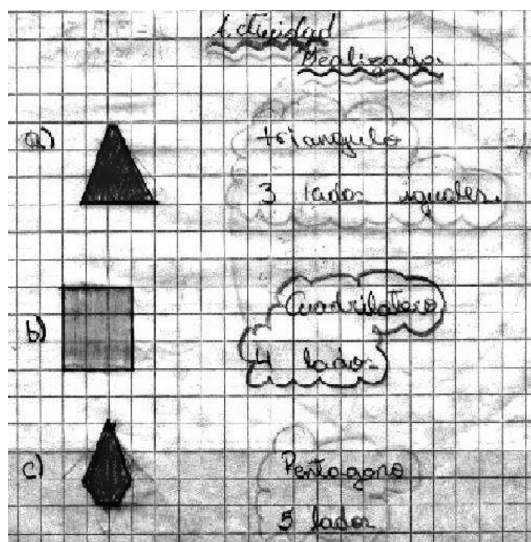 Actividad
Realizado.
a) triangulo
3 lados iguales.
b) Cuadrilatero
4 lados.
c) Pentagono
5 lados